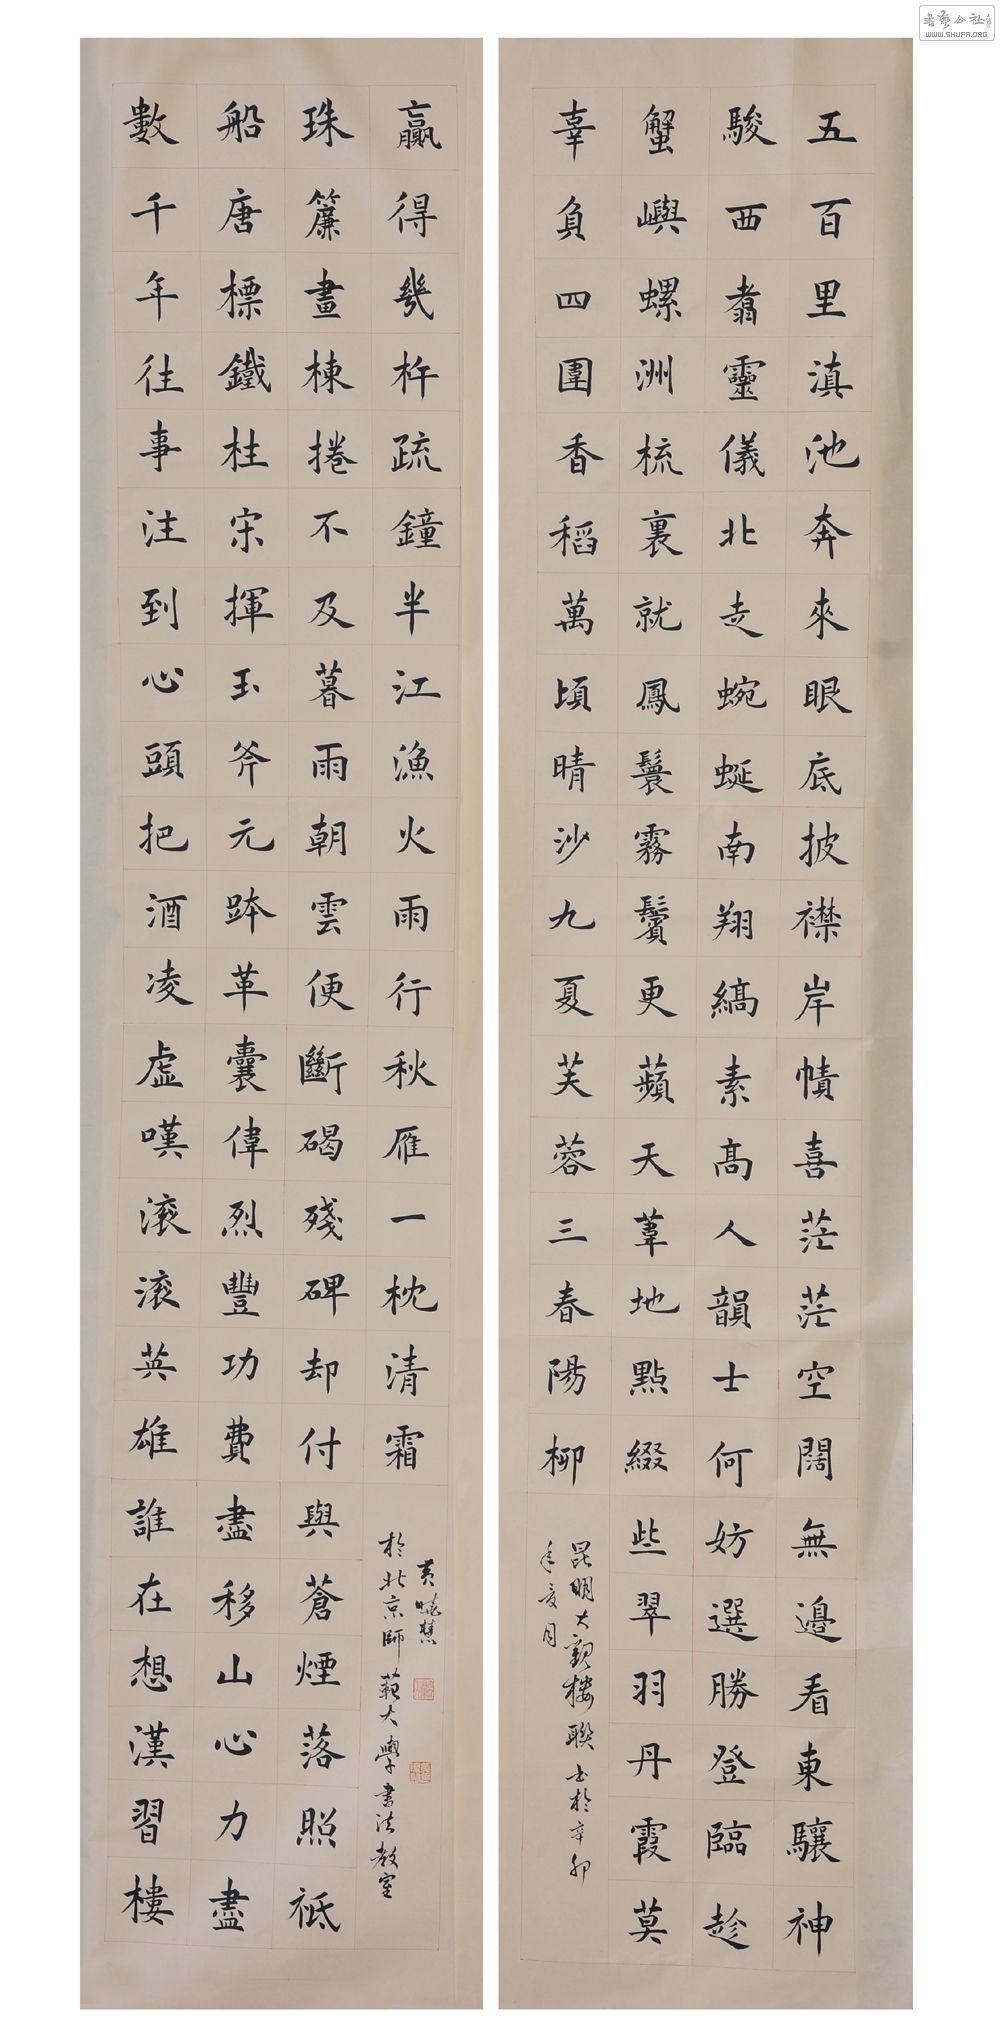 五百里滇池奔來眼底披襟岸幘喜茫茫空闊無邊看東驤神
駿西翥靈儀北走蜿蜒南翔縞素高人韻士何妨選勝登臨趁
蟹嶼螺洲梳裹就鳳鬟霧鬢更蘋天葦地點綴些翠羽丹霞莫
辜負四圍香稻萬頃晴沙九夏芙蓉三春陽柳
昆明大觀樓聯书於辛卯
年夏月
數千年往事注到心頭把酒凌虛嘆滚滚英雄誰在想漢習樓
船唐標鐵柱宋揮玉斧元跨革囊偉烈豐功費盡移山心力盡
珠簾畫棟捲不及暮雨朝雲便斷碣殘碑却付與蒼煙落照祗
贏得幾杵疏鐘半江漁火兩行秋雁一枕清霜
於北京師範大學書法教室
黃曉慧
書藝公社
WWW.SHUFA.ORG